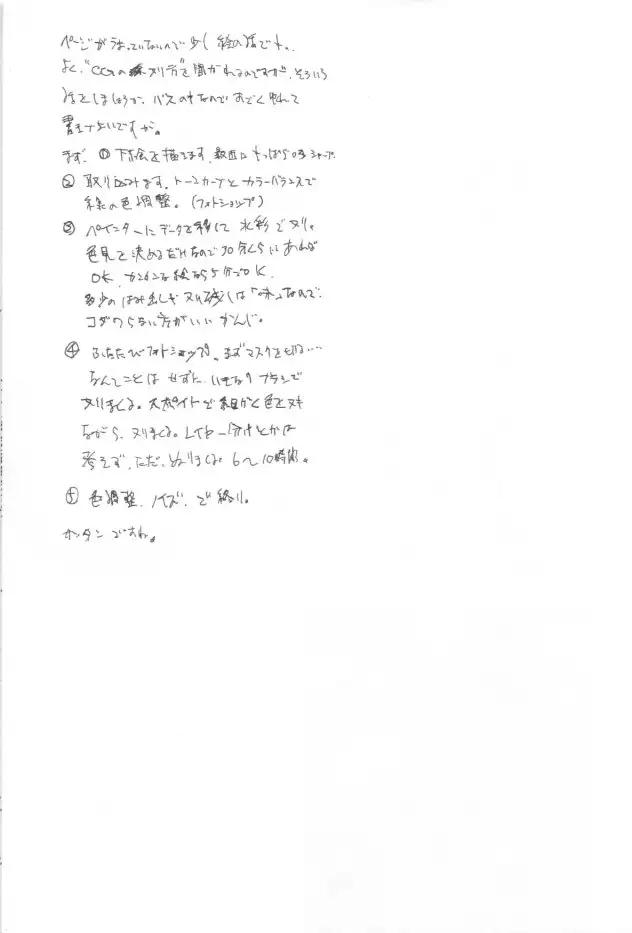 ページがうまっていないので少し絵の話でも。
よく、"CGのヌリ方"を聞かれるのですが、そういう
話をしましょうか、バスの中なのですごくゆれて
書きづらいですが。
まず、① 下絵を描きます、最近はもっぱら0.3シャープ
② 取り込みます、トーンカーブとカラーバランスで
線の色調整。(フォトショップ)
③ ペインターにデータを移して 水彩でヌリ。
色見を決めるだけなので30分くらいあれば
OK、カンタンな絵なら5分でOK。
多少のはみ出しやヌリ残しは「味」なので、
コダワらない方がいいかんじ。
④ ふたたびフォトショップ、まずマスクを切る…
なんてことはせずに、いきなりブラシで
ヌリまくる。スポイトで細かく色をヌキ
ながら、ヌリまくる。レイヤー分けとかは
考えず、ただ、ぬりまくる。6〜10時間。
⑤ 色調整、ノイズ、で終り。
カンタンですね。